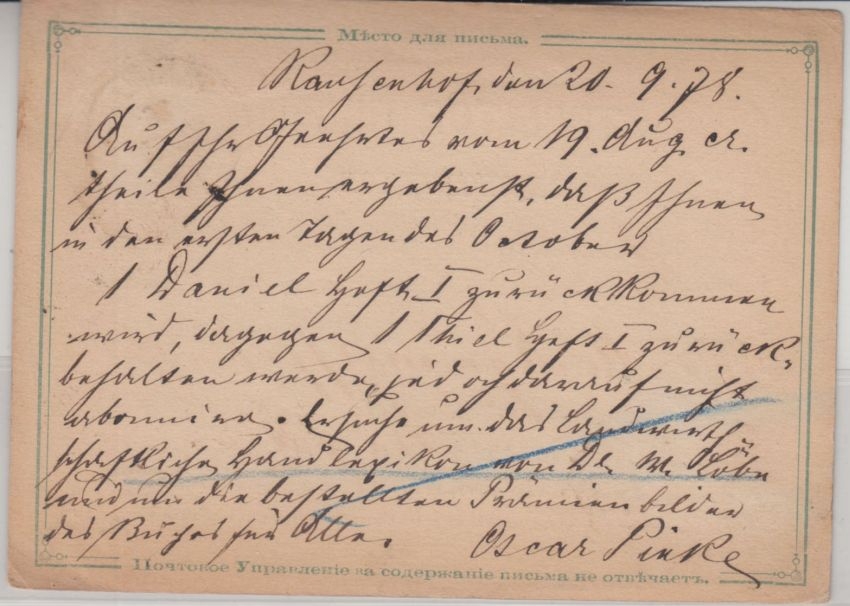 Мѣсто для письма.
den 20. 9. 78.
Auf Ihr Geehrtes vom 19. Aug. cr.
theile Ihnen ergebenst, daß Ihnen
in den ersten Tagen des October
1 Daniel Heft I zurückkommen
wird, dagegen 1 Thiel Heft I zurück-
behalten werde, jedoch darauf nicht
abonnire. Ersuche um das Landwirth-
schaftliche Handlexikon von Dr. W. Löbe
und um die bestellten Prämienbilder
des Buches für Alle.
Oscar Pieke
Почтовое Управленіе за содержаніе письма не отвѣчаетъ.